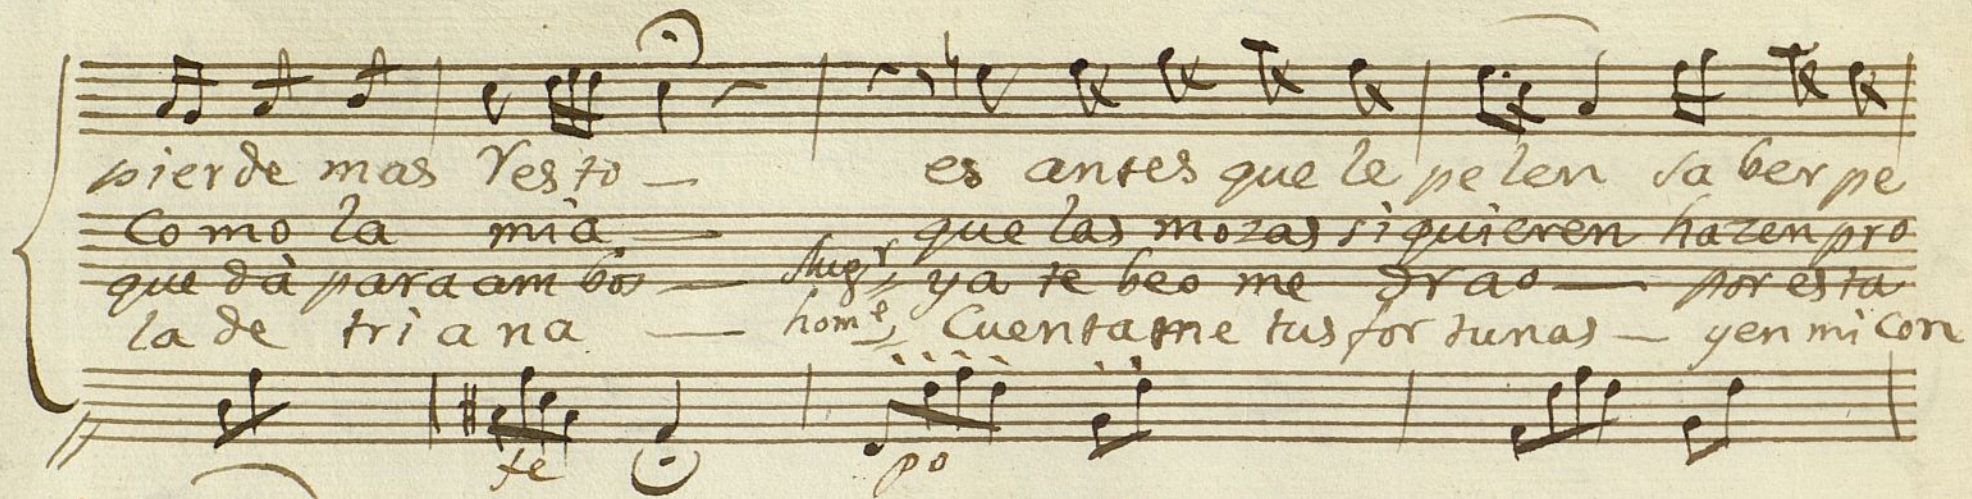 pierde mas Yesto — es antes que le pelen saber pe
Como la mia — que las mozas si quieren hazen pro
que dà para ambos — Mugr, ya te beo me — por esta
la de triana — home, Cuentame tus fortunas — y en mi con
fe po